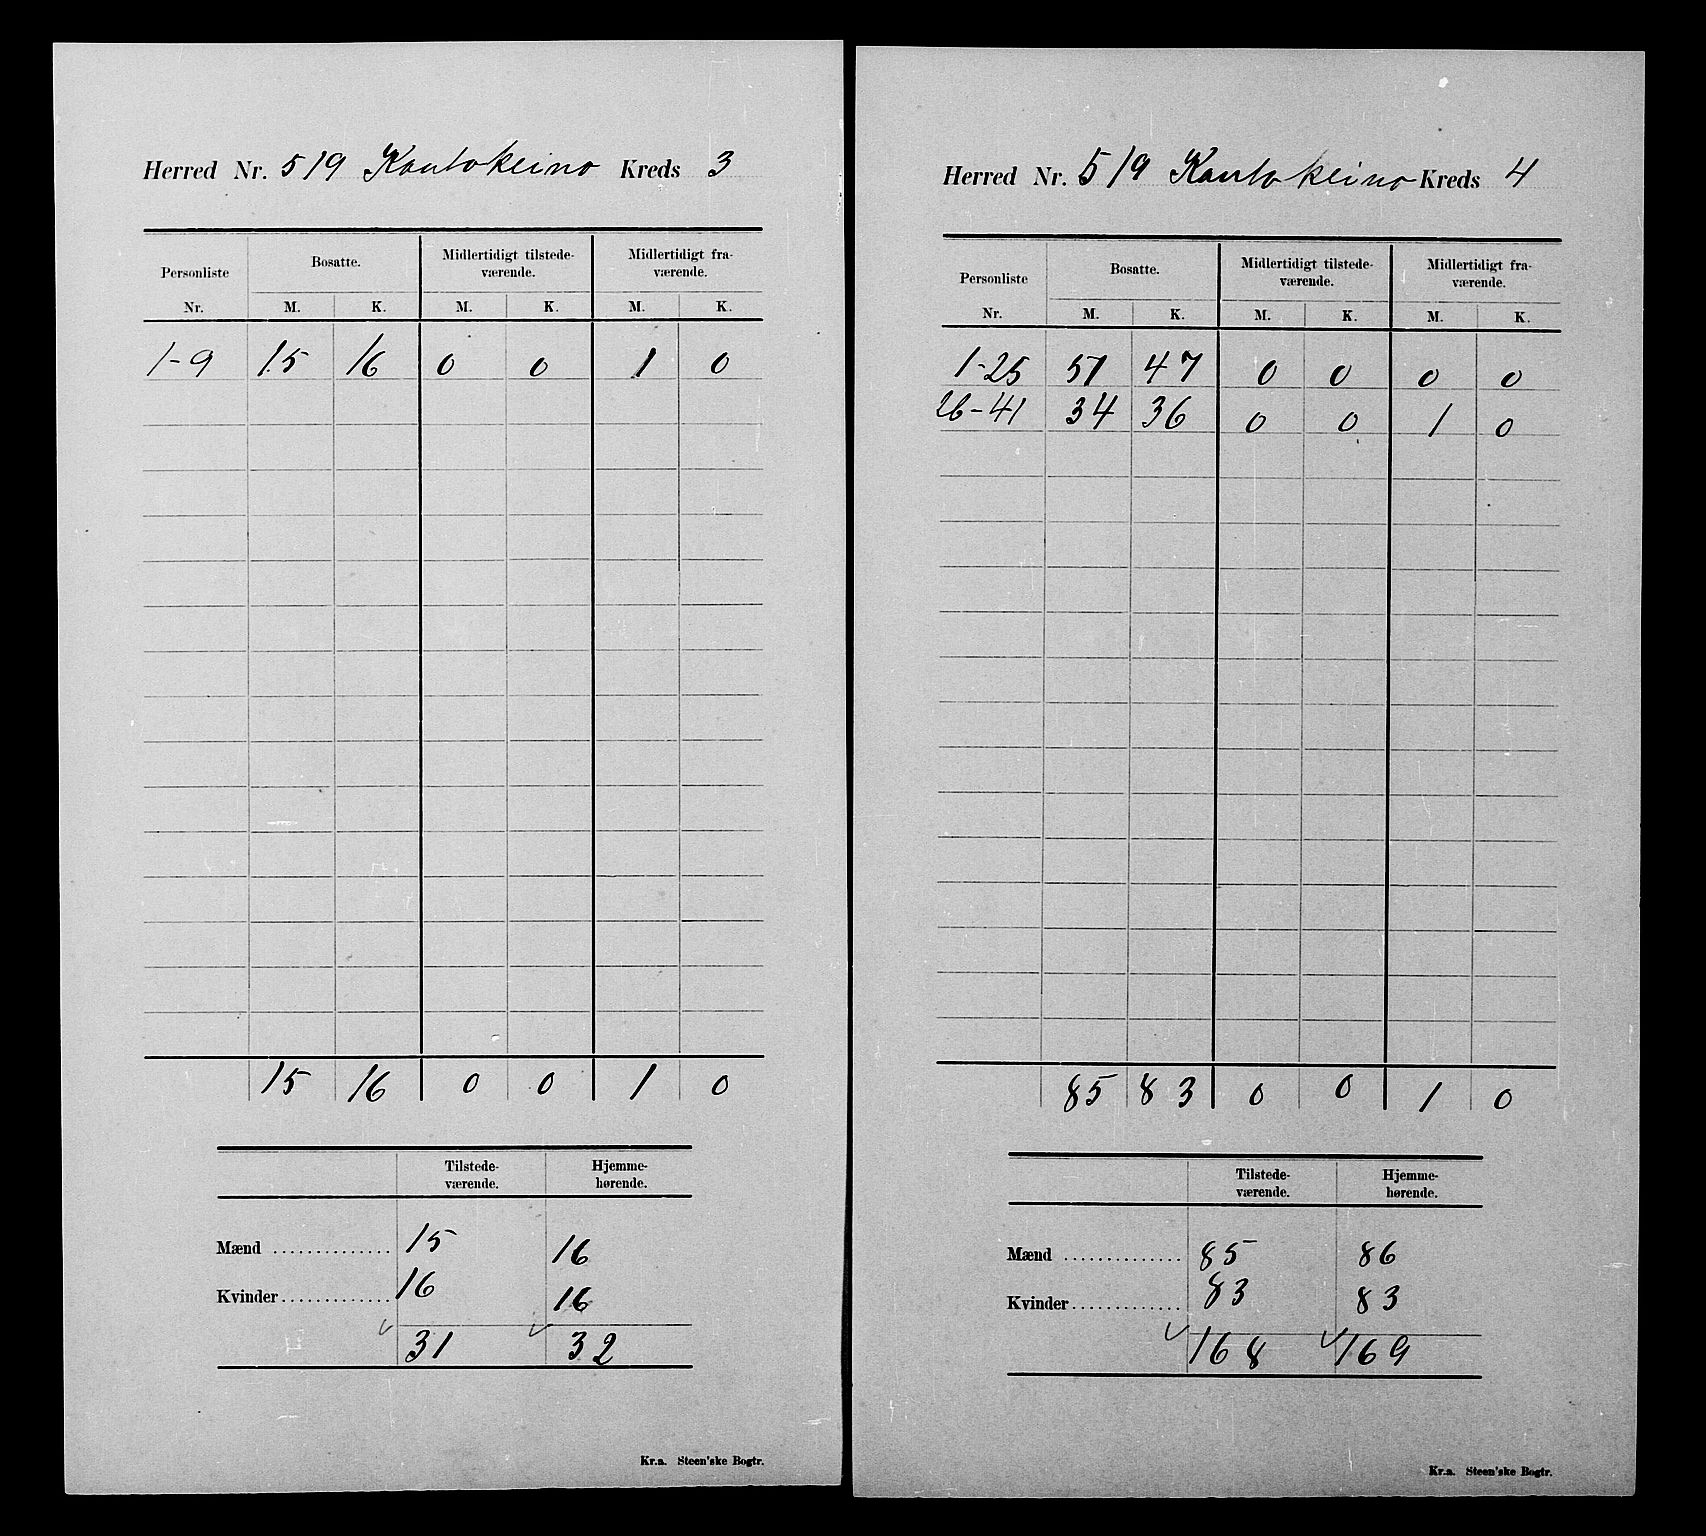 Herred Nr. 519 Kautokeino Kreds 3
Personliste Bosatte. Midlertidigt tilstede- Midlertidigt fra-
værende. værende.
Nr. M. K. M. K. M. K.
1-9 15 16 0 0 1 0
15 16 0 0 1 0
Tilstede- Hjemme-
værende. hørende.
Mænd .............. 15 16
Kvinder ............. 16 16
31 32
Kr.a. Steen'ske Bogtr.
Herred Nr. 519 Kautokeino Kreds 4
Personliste Bosatte. Midlertidigt tilstede- Midlertidigt fra-
værende. værende.
Nr. M. K. M. K. M. K.
1-25 51 47 0 0 0 0
26-41 34 36 0 0 1 0
85 83 0 0 1 0
Tilstede- Hjemme-
værende. hørende.
Mænd .............. 85 86
Kvinder ............. 83 83
168 169
Kr.a. Steen'ske Bogtr.